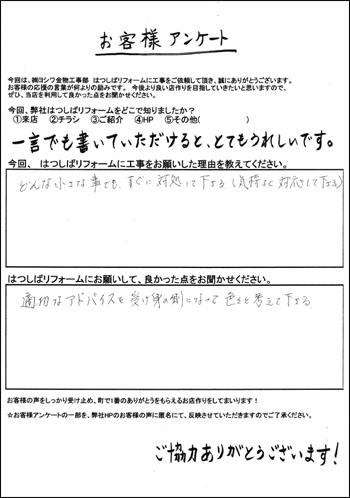 お客様 アンケート
今回は、㈱ヨシワ金物工事部 はつしばリフォームに工事をご依頼して頂き、誠にありがとうございます。
お客様の応援の言葉が何よりの励みです。 今後より良い店作りを目指していきたいと思いますので、
ぜひ、当店を利用して良かった点をお聞かせください。
今回、弊社はつしばリフォームをどこで知りましたか?
①来店 ②チラシ ③ご紹介 ④HP ⑤その他( )
一言でも書いていただけると、とてもうれしいです。
今回、 はつしばリフォームに工事をお願いした理由を教えてください。
どんな小さな事でも、すぐに対処して下さる(気持よく対応して下さる)
はつしばリフォームにお願いして、良かった点をお聞かせください。
適切なアドバイスを受け身の側になって色々と考えて下さる
お客様の声をしっかり受け止め、町で1番のありがとうをもらえるお店作りをしてまいります!
☆お客様アンケートの一部を、弊社HPのお客様の声に匿名にて、反映させていただきますのでご了承ください。
ご協力ありがとうございます!